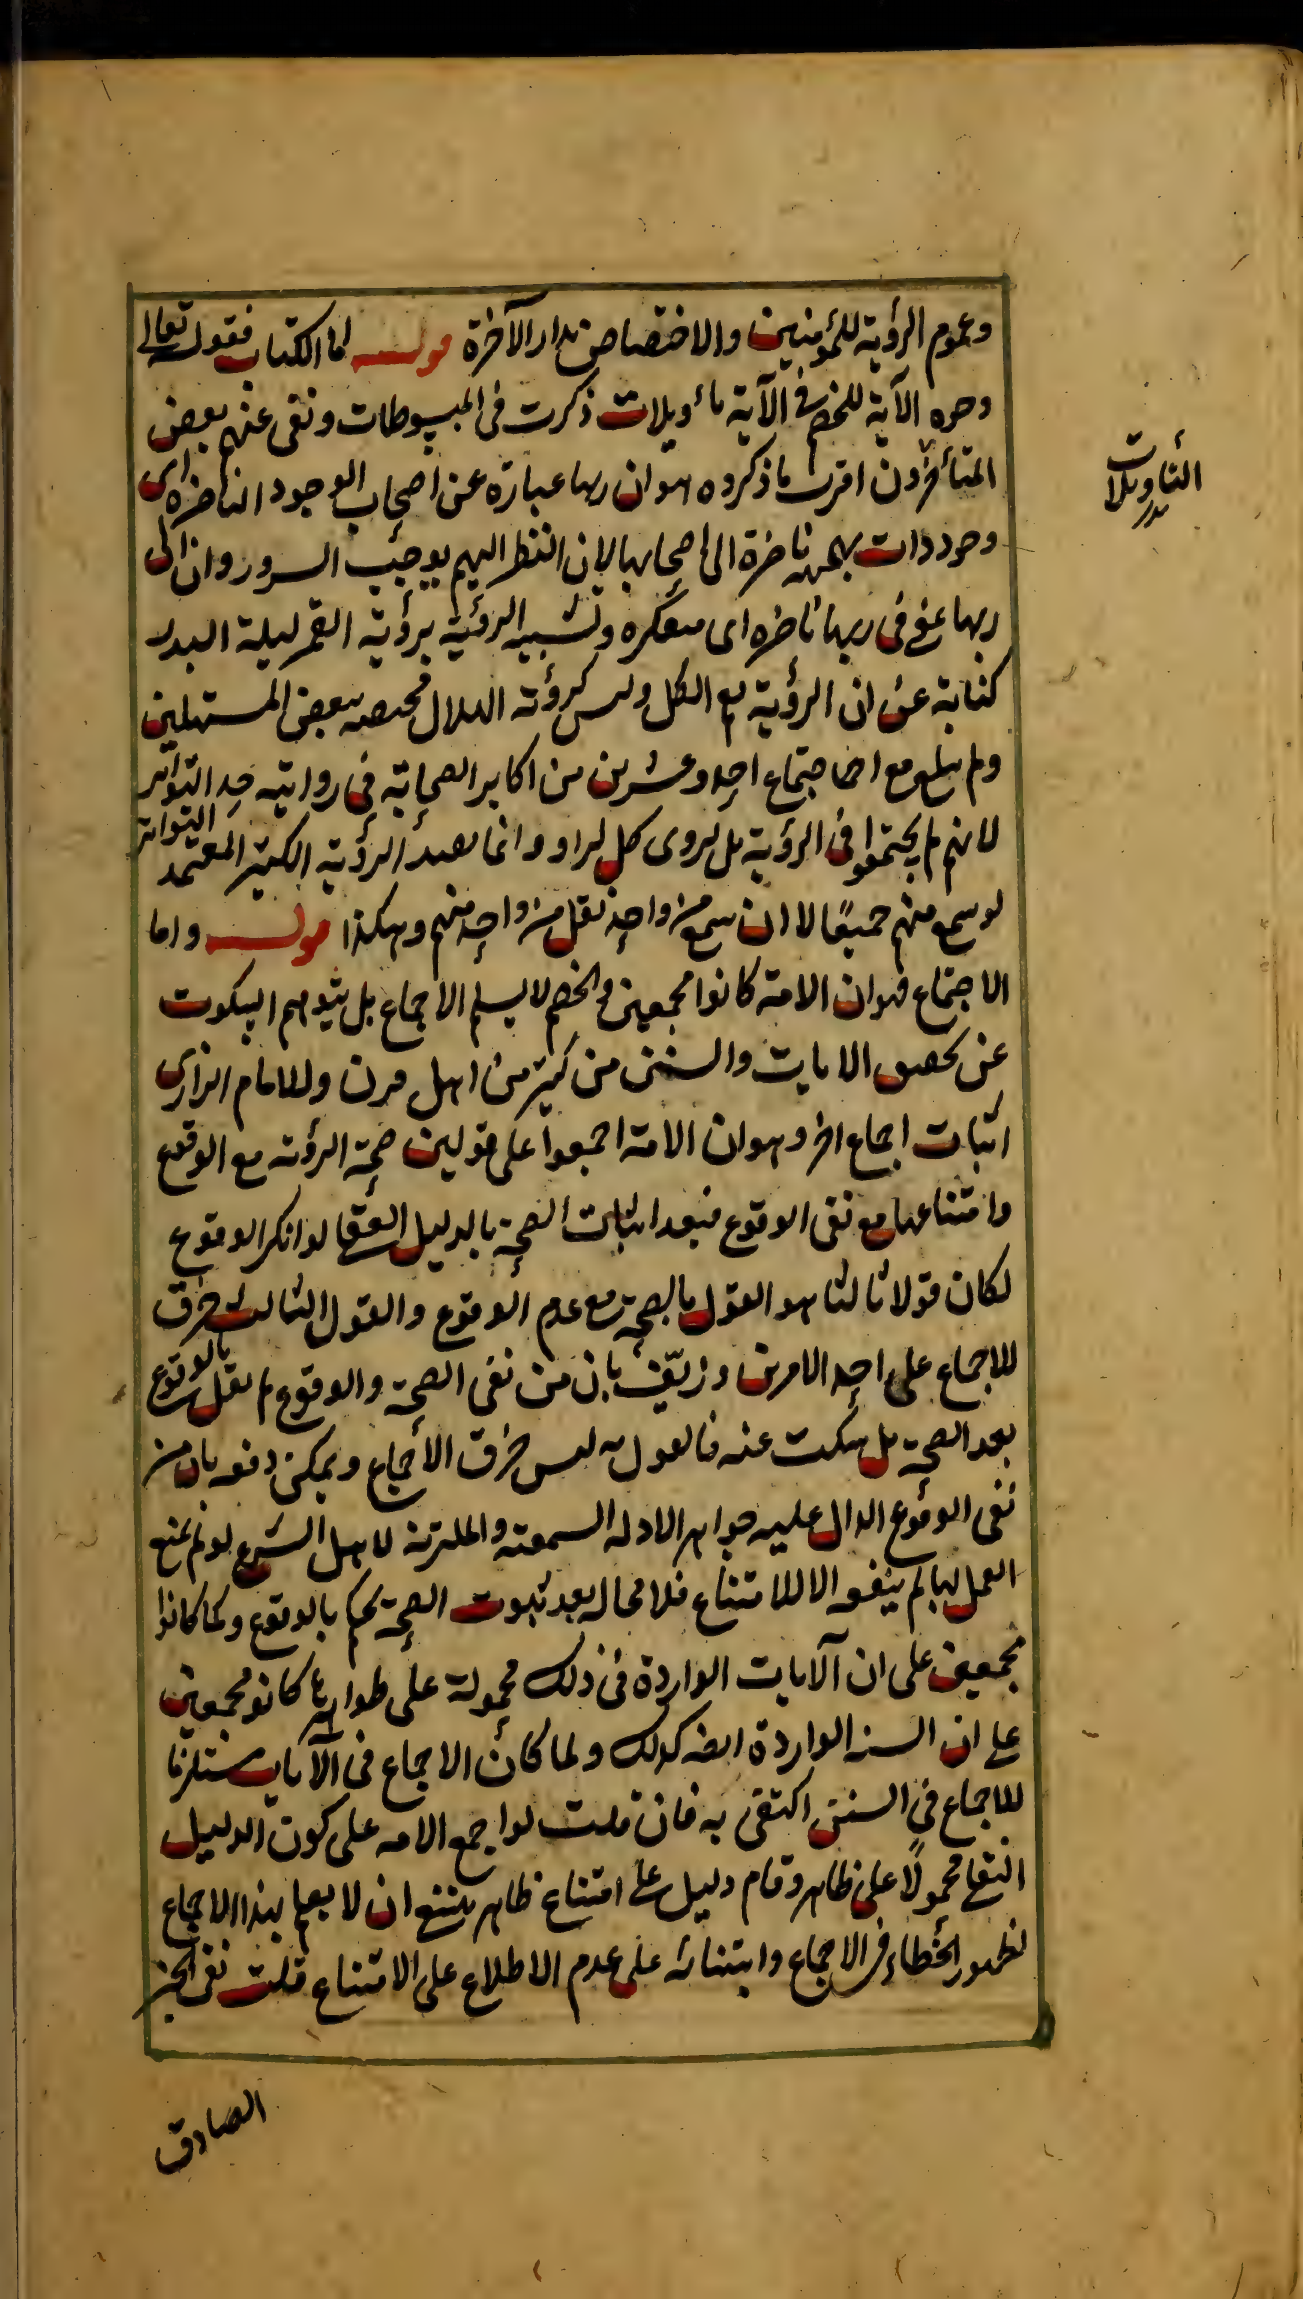 وعموم الرؤية للمؤمنين والاختصاص بدار الآخرة قوله اما الكتاب فقوله تعالى
وجوه الآية للخصم في الآية تأويلات ذكرت في المبسوطات ونقى عنهم بعض
المتأخرون اقرب ما ذكروه هو ان ربها عبارة عن اصحاب الوجوه الناضرة اى
وجوه ذات بهجة ناضرة الى اصحابها لان النظر اليهم يوجب السرور وان الى
ربها عنى فى ربها ناظره اى متفكره وتشبيه الرؤية برؤية القمر ليلة البدر
كناية عن ان الرؤية مع الكل وليس كرؤية الهلال فيختصه ببعض المستهلين
ولم يبلغ مع اجتماع احد وعشرين من اكابر الصحابة فى روايته حد التواتر
لانهم لم يجتمعوا فى الرؤية بل يروى كل لراو وانما يفيد الرؤية الكثير المعتمد التواتر
لو سمع منهم جميعًا لا ان سمع من واحد نقل من واحد منهم وهكذا قوله واما
الاجتماع فهو ان الامة كانوا مجمعين والخصم لا يسلم الاجماع بل السكوت
عن الايات والسنن من كثير من اهل قرن وللامام الرازى
اثبات اجماع اخر وهو ان الامة اجمعوا على قولين صحة الرؤية مع الوقوع
وامتناعها مع نفى الوقوع فبعد اثبات الصحة بالدليل العقلى لو انكر الوقوع
لكان قولا ثالثا هو القول بالصحة مع عدم الوقوع والقول الثالث خرق
للاجماع على احد الامرين وزيّف بان من نفى الصحة والوقوع لم يقل بالوقوع
بعد الصحة بل سكت عنه فالقول به ليس خرق الاجماع ويمكن دفعه بان من
نفى الوقوع الدال عليه ظواهر الادلة السمعية والملتزمة لاهل الشرع لو لم يمنع
العمل بها لم ينفه الا للامتناع فلا محالة بعد ثبوت الصحة يحكم بالوقوع وكما كانوا
مجمعين على ان الآيات الواردة فى ذلك محمولة على ظواهرها كانو مجمعين
على ان السنة الواردة ايضه كذلك ولما كان الاجماع فى الآيات مستلزما
للاجماع فى السنن اكتفى به فان قلت لو اجمع الامه على كون الدليل
النقلى محمولًا على ظاهره وقام دليل على امتناع ظاهره ينبغى ان لا يعلم بهذا الاجماع
لظهور الخطاء فى الاجماع وابتنائه على عدم الاطلاع على الامتناع قلت نفى الخبر
الصادق
التأويلات